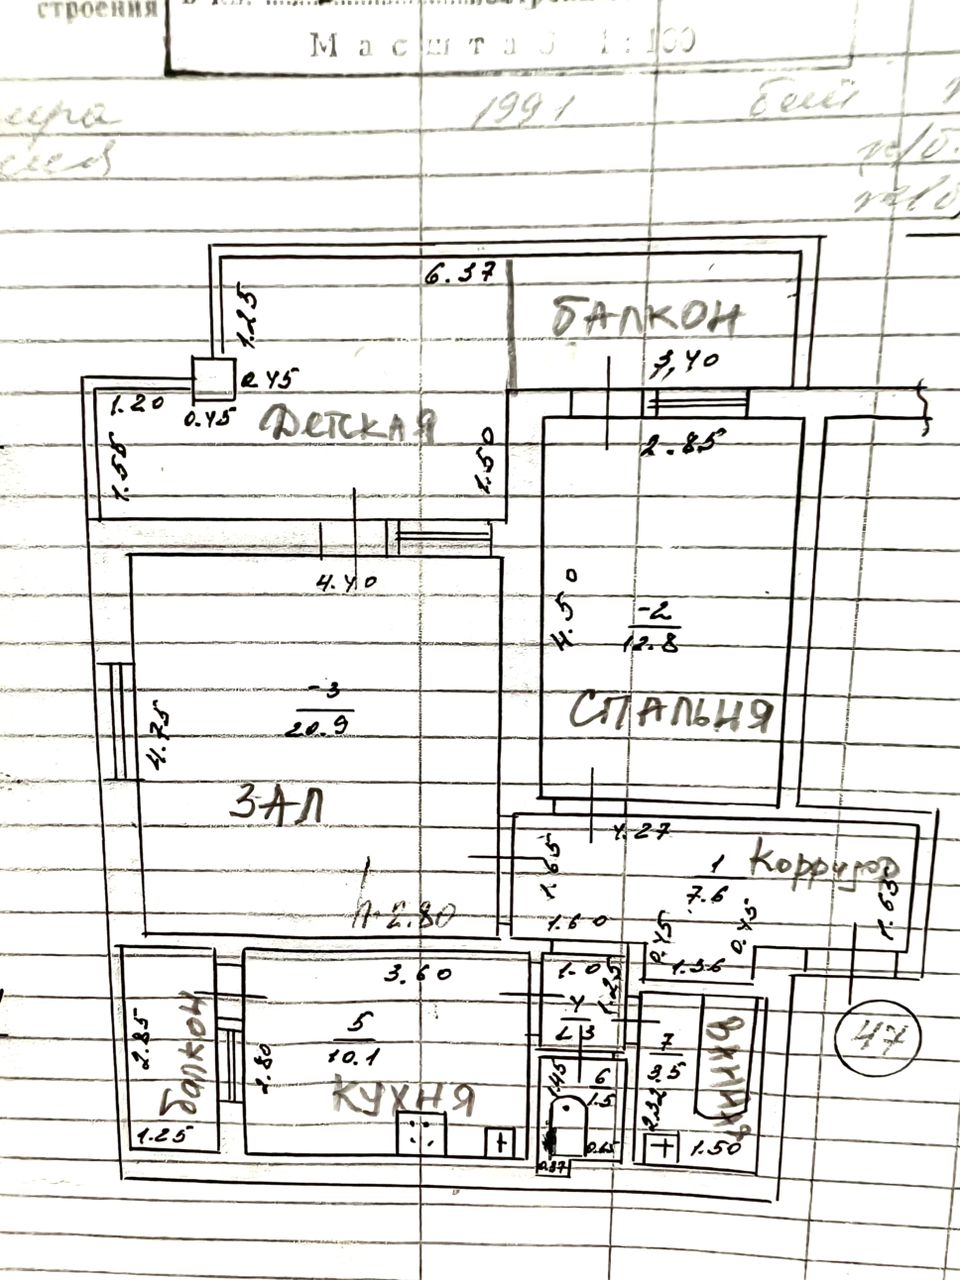 строения
Масштаб 1:100
1991
6.37
1.25
БАЛКОН
3,40
0.45
1.20
0.45
Детская
1.55
1.50
2.85
4.40
4.50
-2
12.8
-3
20.9
СПАЛЬНЯ
4.75
ЗАЛ
4.27
1.65
1
7.6
Корридо
1.63
h-2.80
1.60
0.45
0.45
1.36
3.60
1.0
1.25
2.85
балкон
5
10.1
2.80
4
1.3
7
3.5
ВАННАЯ
47
КУХНЯ
1.45
6
1.5
2.32
1.25
0.37
0.65
1.50